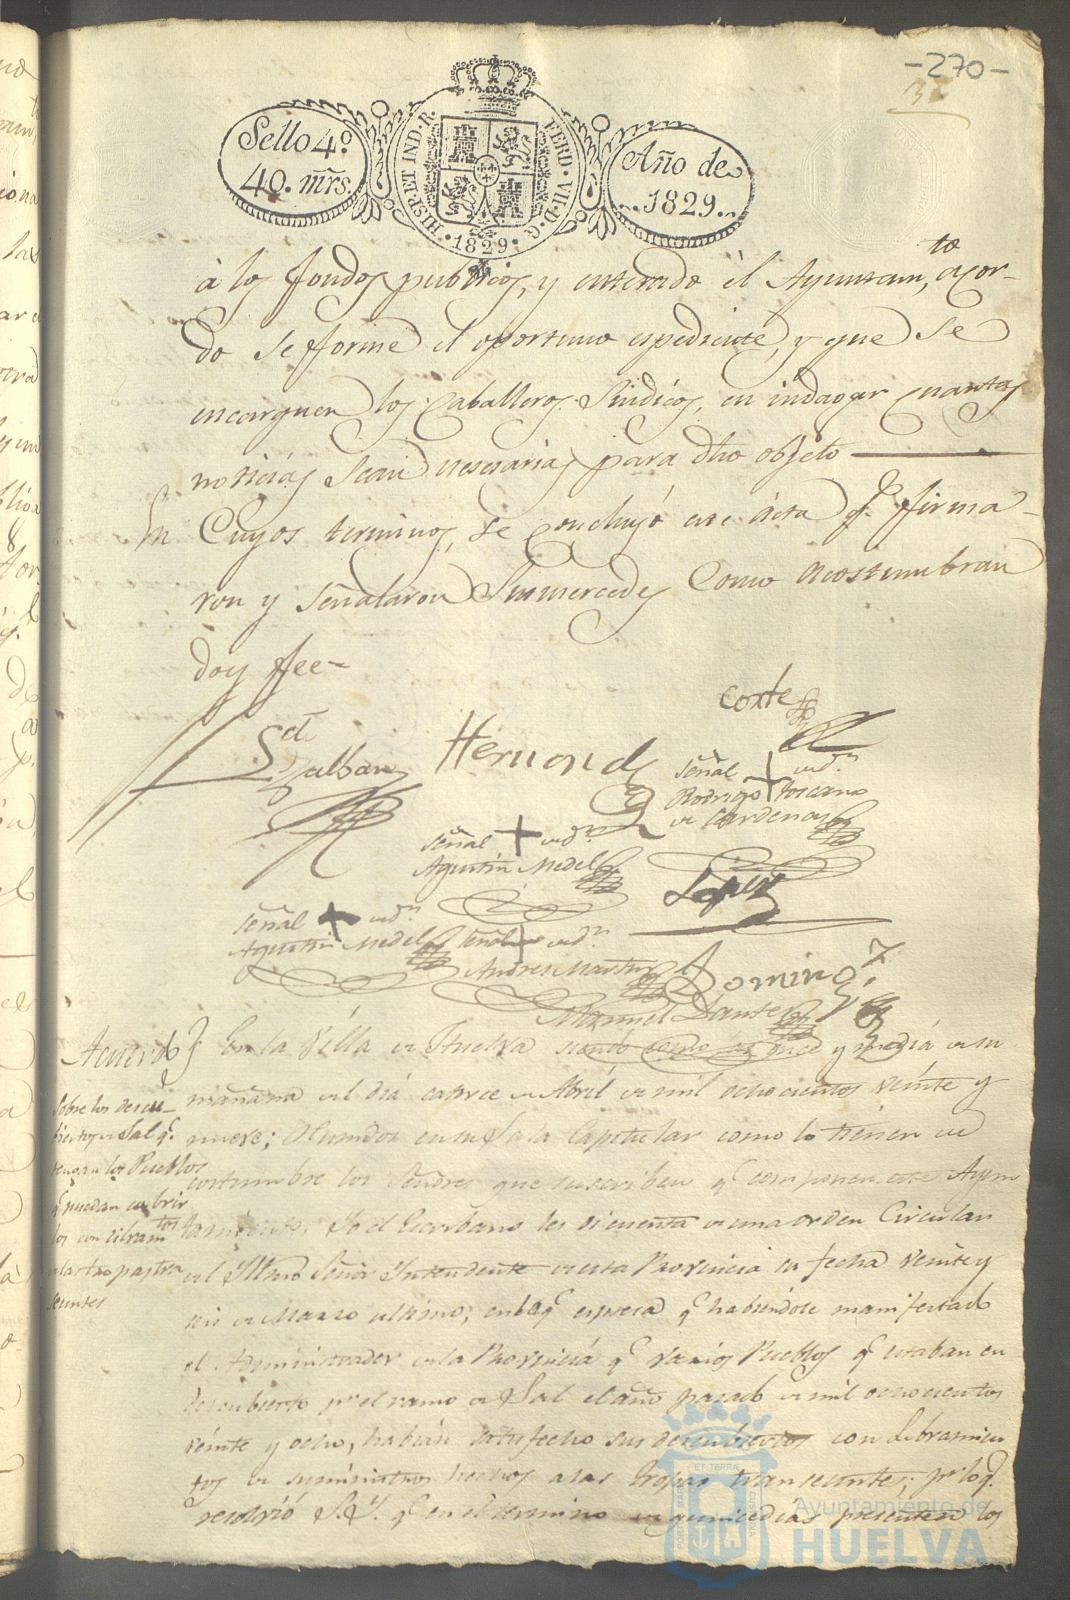 -270-
Sello 4º
40. mrs.
HISP. ET IND. R.
FERD. VII. D. G.
1829.
Año de
1829.
à los fondos publicos, y enterado el Ayuntam.to acor-
do se forme el oportuno espediente, y que se
encarguen los Caballeros Sindicos, en indagar cuantas
noticias sean necesarias para dho objeto
En Cuyos terminos, se concluyó este acta q.e firma-
ron y señalaron Sus mercedes Como acostumbran
doy fee-
Cortes
Galban
Hernond
Señal + de
Rodrigo Toscano
de Cardenas
Señal + de
Agustin Medel
Lopez
Señal + de
Agustin Medel
Señal + de
Andres Martin
Domingz
Manuel Dante
Acuerdo
Sobre los descu-
biertos de Sal q.e
tengan los Pueblos
q.e puedan cubrir
los con libram.tos
a las tropas tran
seuntes
En la Villa de Huelva siendo como las once y media de su
mañana del dia catorce de Abril de mil ochocientos veinte y
nueve; reunidos en su Sala Capitular como lo tienen de
costumbre los Señores que suscriben q.e componen este Ayun
tamiento. Yo el Escribano les di cuenta de una orden Circular
del Yllmo Señor Yntendente de esta Provincia su fecha veinte y
seis de Marzo ultimo; en la q.e espresa q.e habiendole manifestado
el Administrador de la Provincia q.e varios Pueblos q.e estaban en
descubierto p.r el ramo de Sal el año pasado de mil ochocientos
veinte y ocho, habian satisfecho sus descubiertos con Libramien
tos de suministros hechos a las tropas transeuntes; p.r lo q.e
resolvió S.S.Y. q.e en el termino de quince dias presenten los
Ayuntamiento de
HUELVA